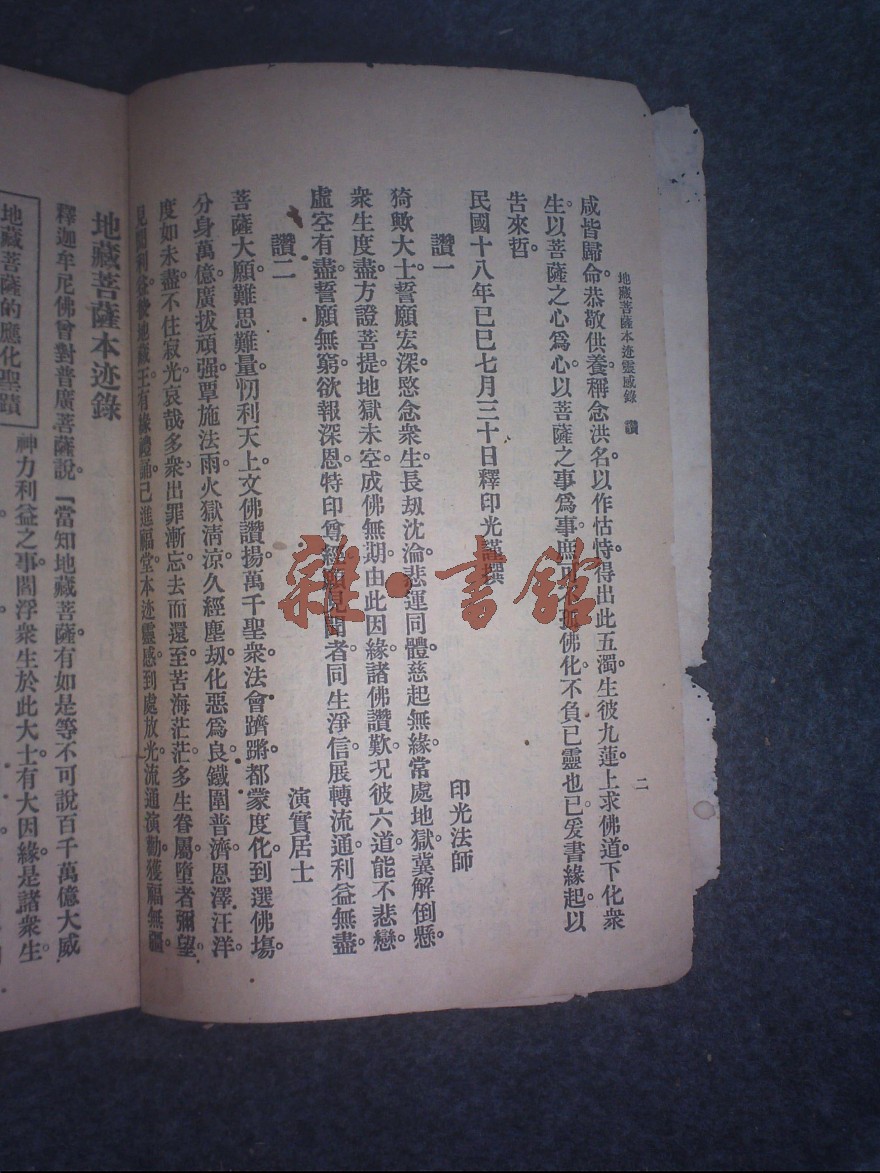 地藏菩薩本迹靈感錄　讚
二
咸皆歸命。恭敬供養。稱念洪名。以作怙恃。得出此五濁。生彼九蓮。上求佛道。下化衆
生。以菩薩之心爲心。以菩薩之事爲事。庶可孤佛化。不負已靈也已。爰書緣起。以
告來哲。
民國十八年已巳七月三十日釋印光謹撰
讚一　印光法師
猗歟大士。誓願宏深。愍念衆生。長刼沈淪。悲運同體。慈起無緣。常處地獄。冀解倒懸。
衆生度盡。方證菩提。地獄未空。成佛無期。由此因緣。諸佛讚歎。况彼六道。能不悲戀。
虛空有盡。誓願無窮。欲報深恩。特印尊經。願見聞者。同生淨信。展轉流通。利益無盡。
讚二　演實居士
菩薩大願。難思難量。忉利天上。文佛讚揚。萬千聖衆。法會躋蹌。都蒙度化。到選佛場。
分身萬億。廣拔頑强。覃施法雨。火獄清涼。久經塵刼。化惡爲良。鐵圍普濟。恩澤汪洋。
度如未盡。不住寂光。哀哉多衆。出罪漸忘。去而還至。苦海茫茫。多生眷屬。墮者彌望。
見聞利益。地藏王有緣禮誦。已進福堂。本迹靈感。到處放光。流通演勸。獲福無疆。
地藏菩薩本迹錄
釋迦牟尼佛曾對普廣菩薩說。「當知地藏菩薩有如是等不可說百千萬億大威
地藏菩薩的應化聖蹟
神力利益之事。閻浮衆生於此大士有大因緣。是諸衆生
雜·書館